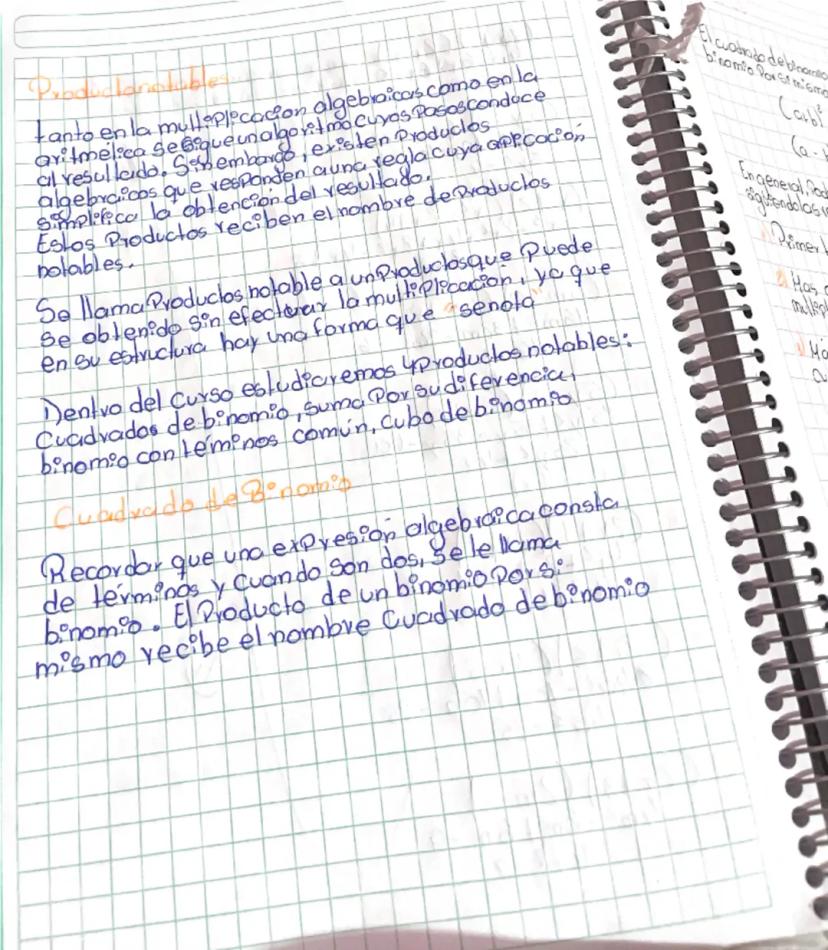 Productos notables
tanto en la multiplicacion algebraicas como en la
aritmética se sigue un algoritmo cuyos Pasos conduce
al resultado. Sin embargo, existen Productos
algebraicos que responden a una regla cuya aplicación
simplifica la obtencion del resultado.
Estos Productos reciben el nombre de Productos
notables.
Se llama Productos notable a un Productos que Puede
se obtenido sin efectuar la multiplicacion, ya que
en su estructura hay una forma que senota
Dentro del curso estudiaremos 4 Productos notables:
Cuadrados de binomio, suma Por su diferencia,
binomio con términos común, Cubo de binomio
Cuadrado de Binomio
Recordar que una expresión algebraica consta
de términos y Cuando son dos, se le llama
binomio. El Producto de un binomio Por si
mismo recibe el nombre Cuadrado de binomio
El cuadrado de binomio
binomio Por si mismo
(a+b)²
(a -
En general, Pod
siguiendo las
Primer
Más
multipl
Má